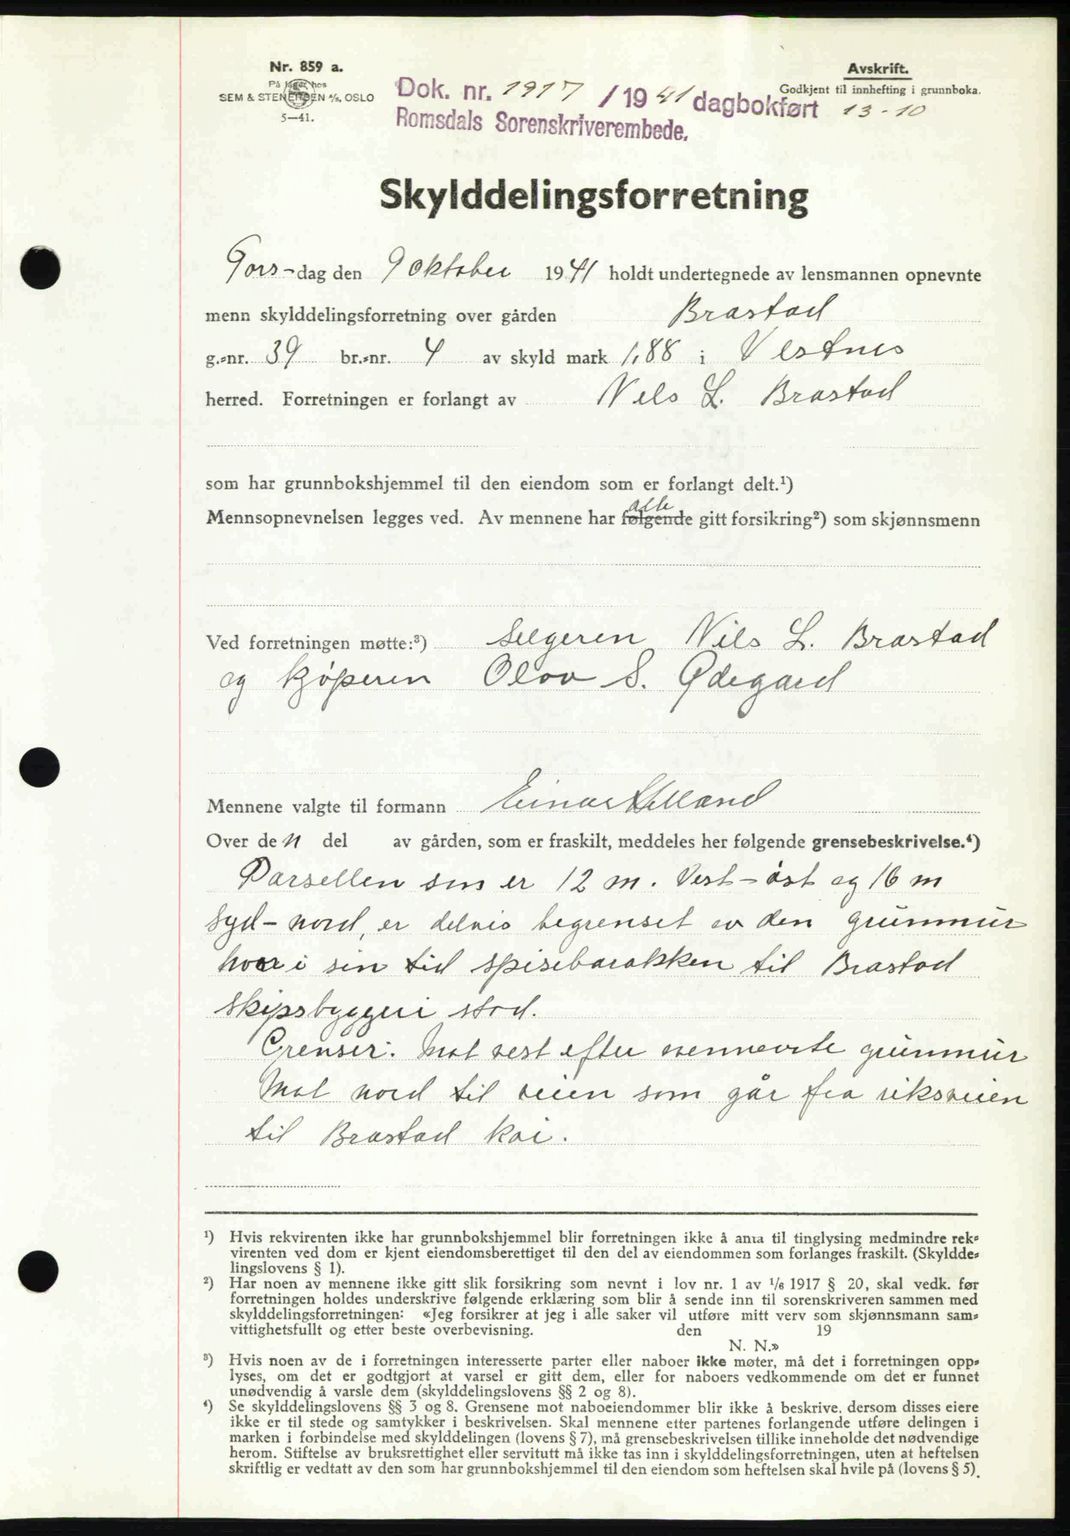 Nr. 859 a.
På lager hos
SEM & STENERSEN A/S, OSLO
5—41.
Avskrift.
Godkjent til innhefting i grunnboka.
Dok. nr. 1917 / 19 41 dagbokført 13-10
Romsdals Sorenskriverembede.
Skylddelingsforretning
Tors-dag den 9 oktober 1941 holdt undertegnede av lensmannen opnevnte
menn skylddelingsforretning over gården Brastad
g.-nr. 39 br.-nr. 4 av skyld mark 1,88 i Vestnes
herred. Forretningen er forlangt av Nils L. Brastad
som har grunnbokshjemmel til den eiendom som er forlangt delt.¹)
alle
Mennsopnevnelsen legges ved. Av mennene har følgende gitt forsikring²) som skjønnsmenn
Ved forretningen møtte:³) Selgeren Nils L. Brastad
og kjøperen Olav S. Ødegard
Mennene valgte til formann Einar Helland
Over den del av gården, som er fraskilt, meddeles her følgende grensebeskrivelse.⁴)
Parsellen som er 12 m. Vest-øst og 16 m
syd-nord, er delvis begrenset av den grunnmur
hvor i sin tid spisebarakken til Brastad
skipsbyggeri stod.
Grenser: Mot vest efter nennevnte grunnmur
Mot nord til veien som går fra riksveien
til Brastad kai.
¹) Hvis rekvirenten ikke har grunnbokshjemmel blir forretningen ikke å anta til tinglysing medmindre rek-
virenten ved dom er kjent eiendomsberettiget til den del av eiendommen som forlanges fraskilt. (Skyldde-
lingslovens § 1).
²) Har noen av mennene ikke gitt slik forsikring som nevnt i lov nr. 1 av 1/6 1917 § 20, skal vedk. før
forretningen holdes underskrive følgende erklæring som blir å sende inn til sorenskriveren sammen med
skylddelingsforretningen: «Jeg forsikrer at jeg i alle saker vil utføre mitt verv som skjønnsmann sam-
vittighetsfullt og etter beste overbevisning. den 19
N. N.»
³) Hvis noen av de i forretningen interesserte parter eller naboer ikke møter, må det i forretningen opp-
lyses, om det er godtgjort at varsel er gitt dem, eller for naboers vedkommende om det er funnet
unødvendig å varsle dem (skylddelingslovens §§ 2 og 8).
⁴) Se skylddelingslovens §§ 3 og 8. Grensene mot naboeiendommer blir ikke å beskrive, dersom disses eiere
ikke er til stede og samtykker i beskrivelsen. Skal mennene etter partenes forlangende utføre delingen i
marken i forbindelse med skylddelingen (lovens § 7), må grensebeskrivelsen tillike inneholde det nødvendige
herom. Stiftelse av bruksrettighet eller servitutt må ikke tas inn i skylddelingsforretningen, uten at heftelsen
skriftlig er vedtatt av den som har grunnbokshjemmel til den eiendom som heftelsen skal hvile på (lovens § 5).